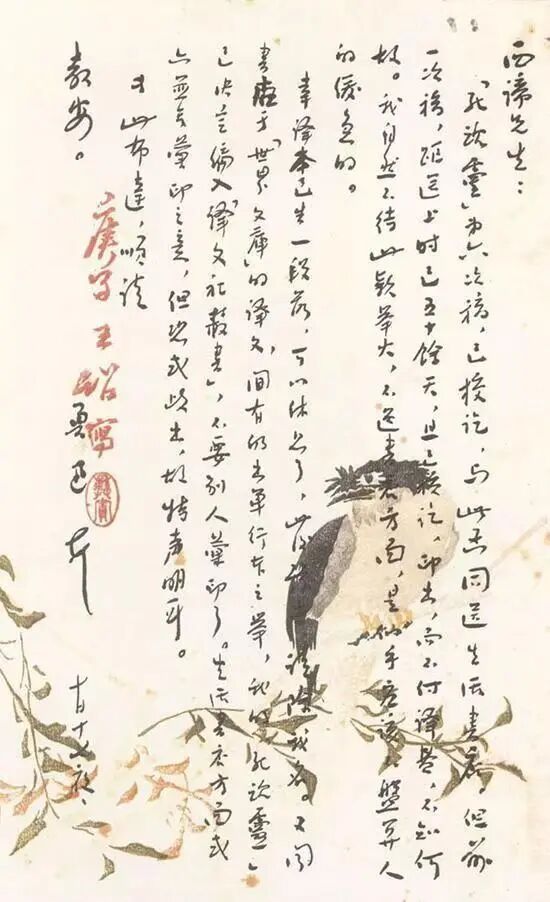 西谛先生：
「死魂灵」第六次稿，已校讫，与此函同送生活书店。但前
一次稿，距送上时已五十馀天，且已校讫，印出，而不付译费，不知何
故。我自然不待此款举火，不过书店方面，是似乎应该盤算人
的缓急的。
幸译本已告一段落，可以休息了，此后 请除我名。又闻
书店于「世界文库」的译文，间有仍出单行本之举，我的「死魂灵」
已决定编入「译文社丛书」，不要别人汇印了。生活书店方面或
亦并无汇印之意，但恐或歧出，故特声明耳。
专此布达，顺请
教安。
鲁迅 上
十月十七夜、
庚子 王 写